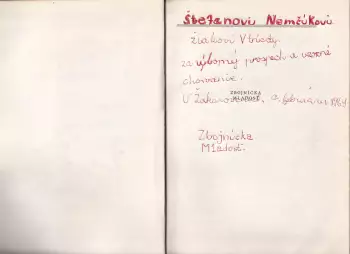 Štefanovi Nemčúkovi
žiakovi V triedy
za výborný prospech a vzorné
chovanie.
ZBOJNÍCKA
MLADOSŤ
V februára 1969
Zbojnícka
Mladosť.